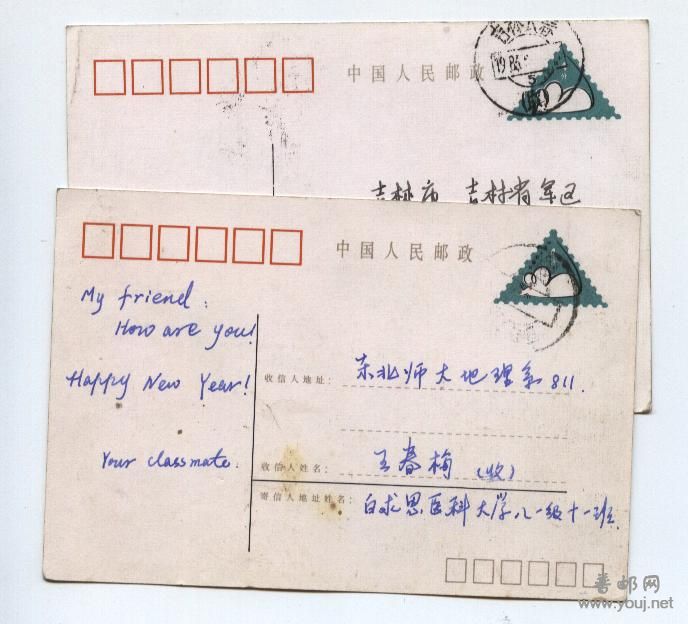 中国人民邮政
吉林市 吉林省军区
中国人民邮政
My friend:
How are you!
Happy New Year!
Your classmate.
收信人地址:
东北师大地理系811.
收信人姓名:
王春梅 (收)
寄信人地址姓名:
白求恩医科大学八一级十一班.
普邮网
www.youj.net